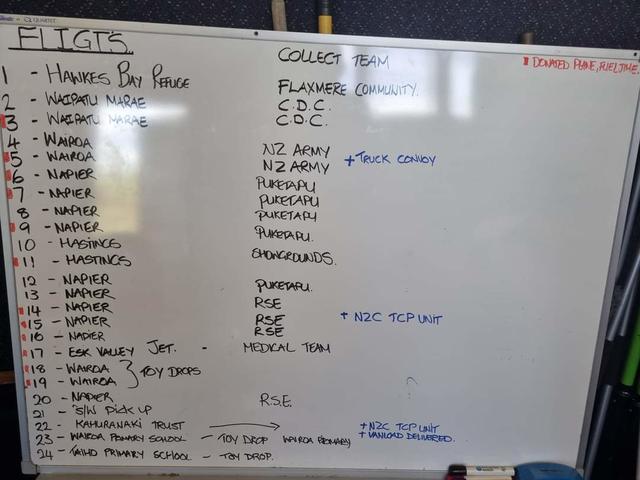 QUARTET
FLIGTS.
COLLECT TEAM
DONATED PLANE, FUEL, TIME.
1 - HAWKES BAY REFUGE FLAXMERE COMMUNITY.
2 - WAIPATU MARAE C.D.C.
3 - WAIPATU MARAE C.D.C.
4 - WAIROA NZ ARMY
5 - WAIROA NZ ARMY + TRUCK CONVOY
6 - NAPIER PUKETAPU
7 - NAPIER PUKETAPU
8 - NAPIER PUKETAPU
9 - NAPIER PUKETAPU.
10 - HASTINGS
11 - HASTINGS SHOWGROUNDS.
12 - NAPIER PUKETAPU.
13 - NAPIER RSE
14 - NAPIER RSE + NZC TCP UNIT
15 - NAPIER RSE
16 - NAPIER
17 - ESK VALLEY JET. - MEDICAL TEAM
18 - WAIROA } TOY DROPS
19 - WAIROA
20 - NAPIER R.S.E.
21 - S/W PICK UP
22 - KAHURANAKI TRUST → + NZC TCP UNIT
23 - WAIROA PRIMARY SCHOOL - TOY DROP WAIROA PRIMARY + VANLOAD DELIVERED.
24 - PRIMARY SCHOOL - TOY DROP.